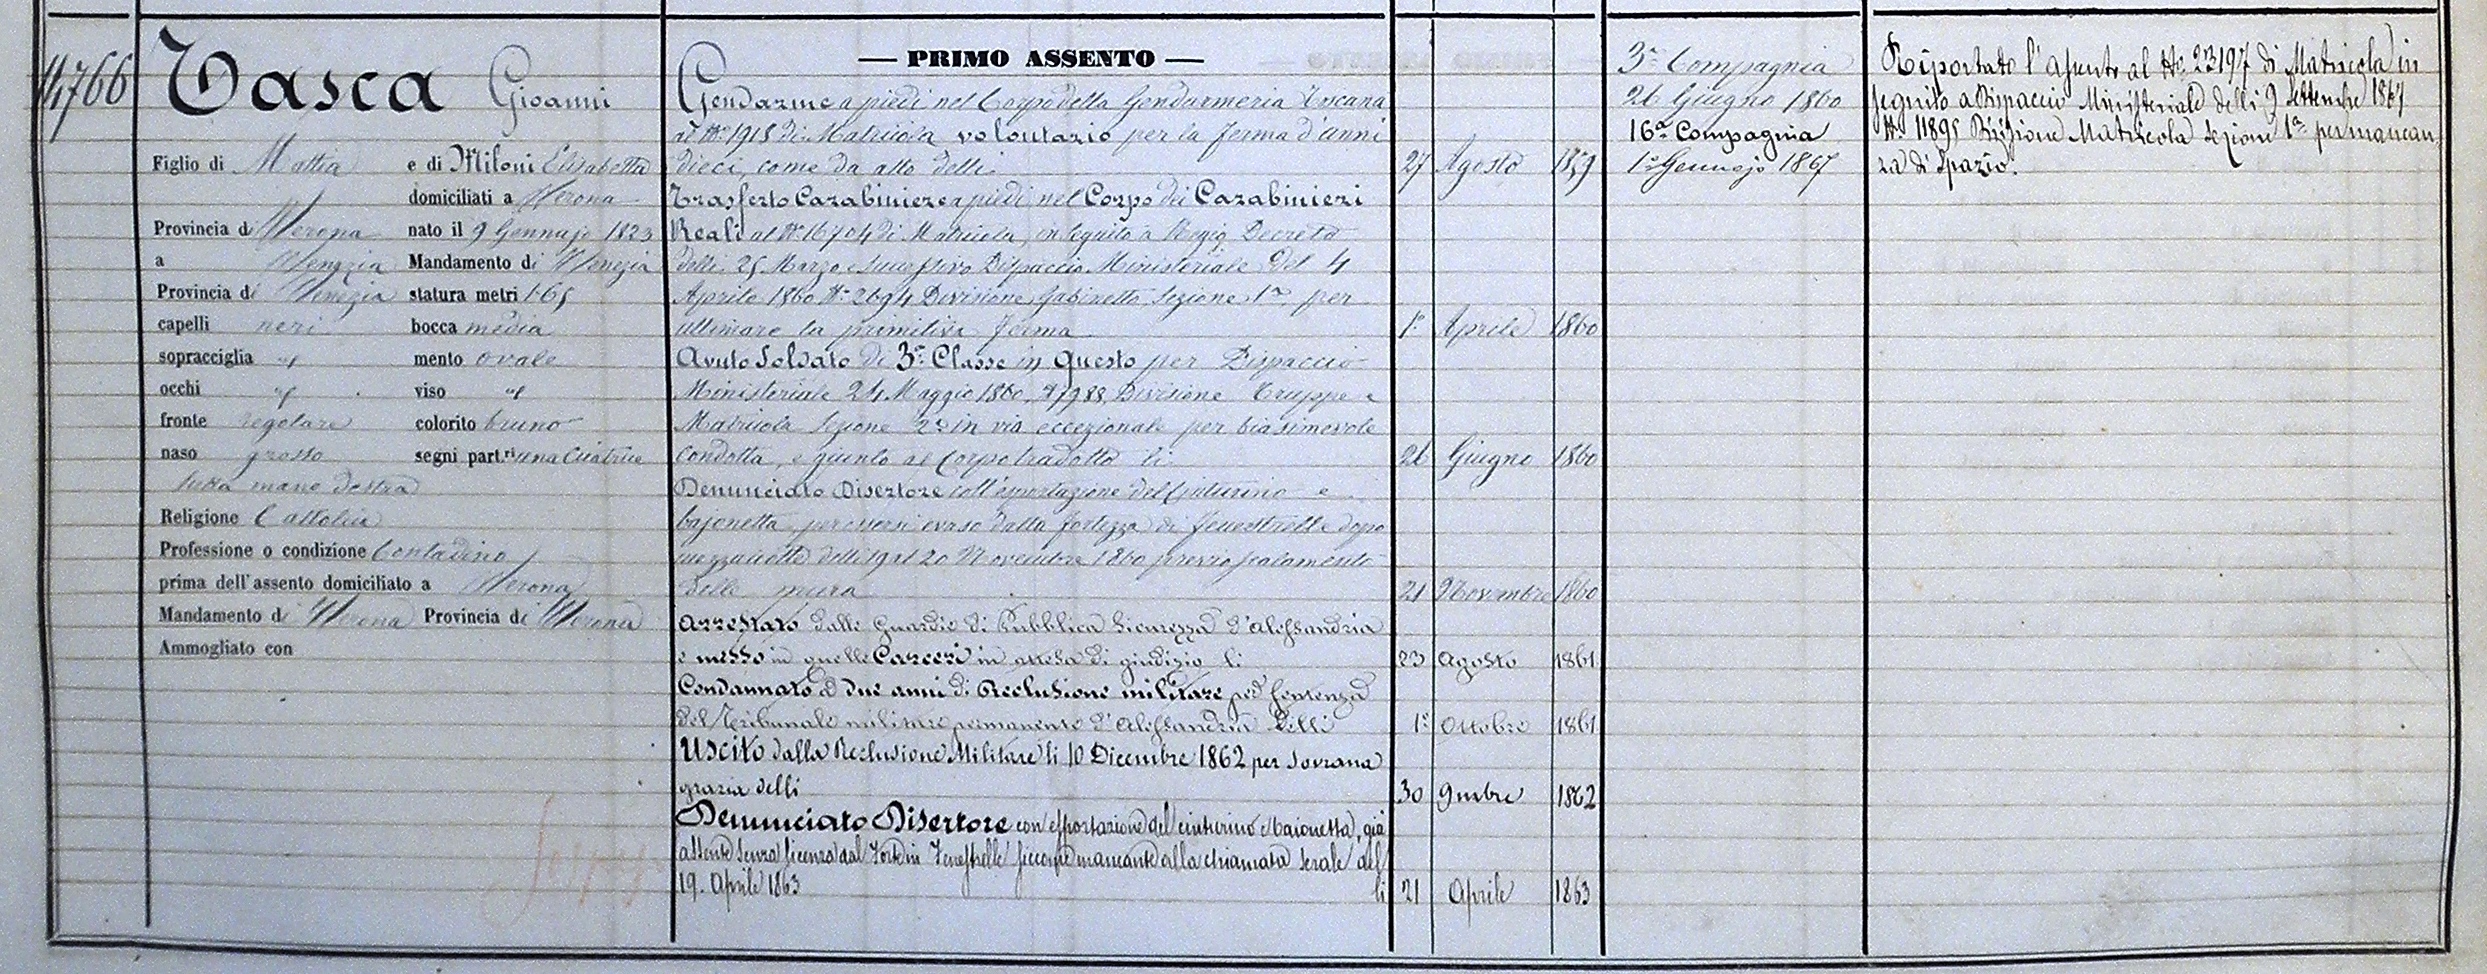 14766
Tasca Gioanni
Figlio di Mattia e di Miloni Elisabetta
domiciliati a Verona
Provincia di Verona nato il 9 Gennajo 1823
a Venezia Mandamento di Venezia
Provincia di Venezia statura metri 1.65
capelli neri bocca media
sopracciglia " mento ovale
occhi " viso "
fronte regolare colorito bruno
naso grosso segni part.ri una Cicatrice
sulla mano destra
Religione Cattolica
Professione o condizione Contadino
prima dell'assento domiciliato a Verona
Mandamento di Verona Provincia di Verona
Ammogliato con
— PRIMO ASSENTO —
Gendarme a piedi nel Corpo della Gendarmeria Toscana
al N.º 1915 di Matricola volontario per la ferma d'anni
dieci, come da atto delli 27 Agosto 1859
Trasferto Carabiniere a piedi nel Corpo dei Carabinieri
Reali al N.º 16704 di Matricola, in seguito a Regio Decreto
delli 25 Marzo e successivo Dispaccio Ministeriale del 4
Aprile 1860 N.º 2694 Divisione Gabinetto Sezione 1.a per
ultimare la primitiva ferma 1.º Aprile 1860
Avuto Soldato di 3.a Classe in questo per Dispaccio
Ministeriale 24 Maggio 1860, N.º 7988, Divisione Truppe e
Matricola Sezione 2.a in via eccezionale per biasimevole
condotta, e giunto al Corpo tradotto li 26 Giugno 1860
Denunciato Disertore coll'esportazione del Cinturino e
bajonetta per essersi evaso dalla fortezza di Fenestrelle dopo
mezzanotte delli 19 al 20 Novembre 1860 previo scalamento
delle mura 21 Novembre 1860
Arrestato dalle Guardie di Pubblica Sicurezza d'Alessandria
e messo in quelle Carceri in attesa di giudizio li 23 Agosto 1861
Condannato a due anni di Reclusione militare per Sentenza
del Tribunale militare permanente d'Alessandria delli 1.º Ottobre 1861
Uscito dalla Reclusione Militare li 10 Dicembre 1862 per sovrana
grazia delli 30 9mbre 1862
Denunciato Disertore con esportazione del cinturino e baionetta, già
assente senza licenza dal Forte di Fenestrelle siccome mancante alla chiamata serale del
19. Aprile 1863 li 21 Aprile 1863
3.a Compagnia
26 Giugno 1860
16a Compagnia
1.º Gennajo 1867
Riportato l'assento al N.º 23197 di Matricola in
seguito a Dispaccio Ministeriale delli 9 Settembre 1867
N.º 11895 Divisione Matricola Sezione 1.a per mancan
za di spazio.